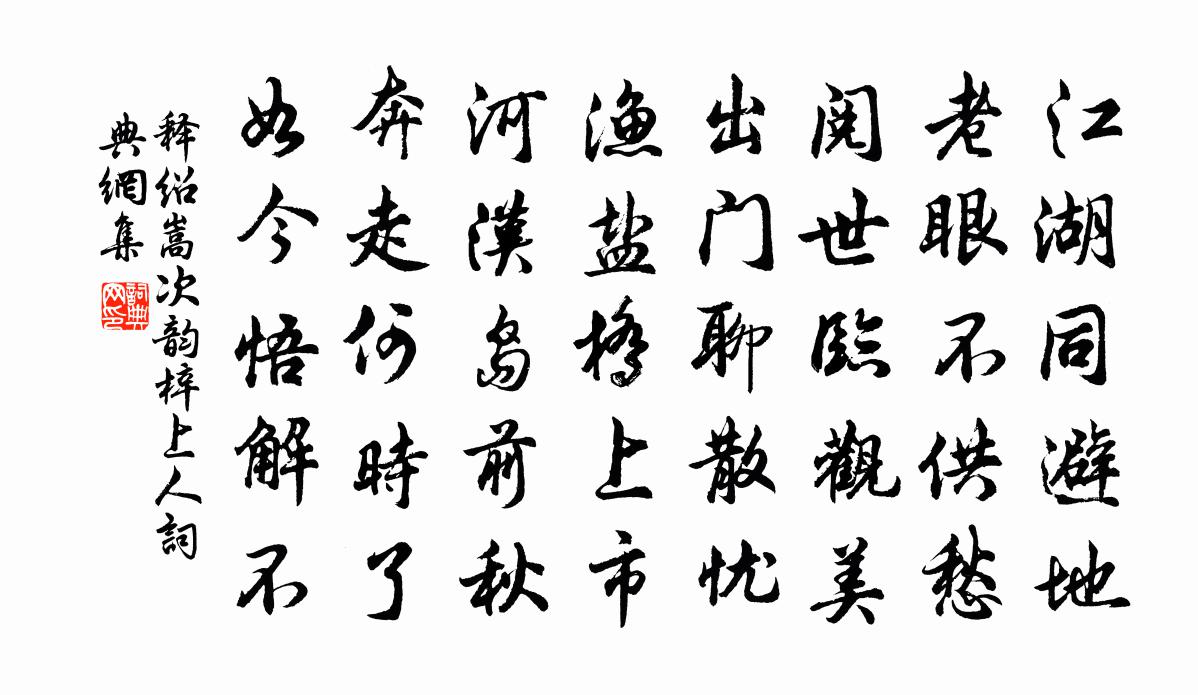 江湖同避地
老眼不供愁
阅世臨觀美
出门聊散忧
渔盐橋上市
河漢岛前秋
奔走何時了
如今悟解不
释绍嵩次韵梓上人詞
典網集
詞典网印